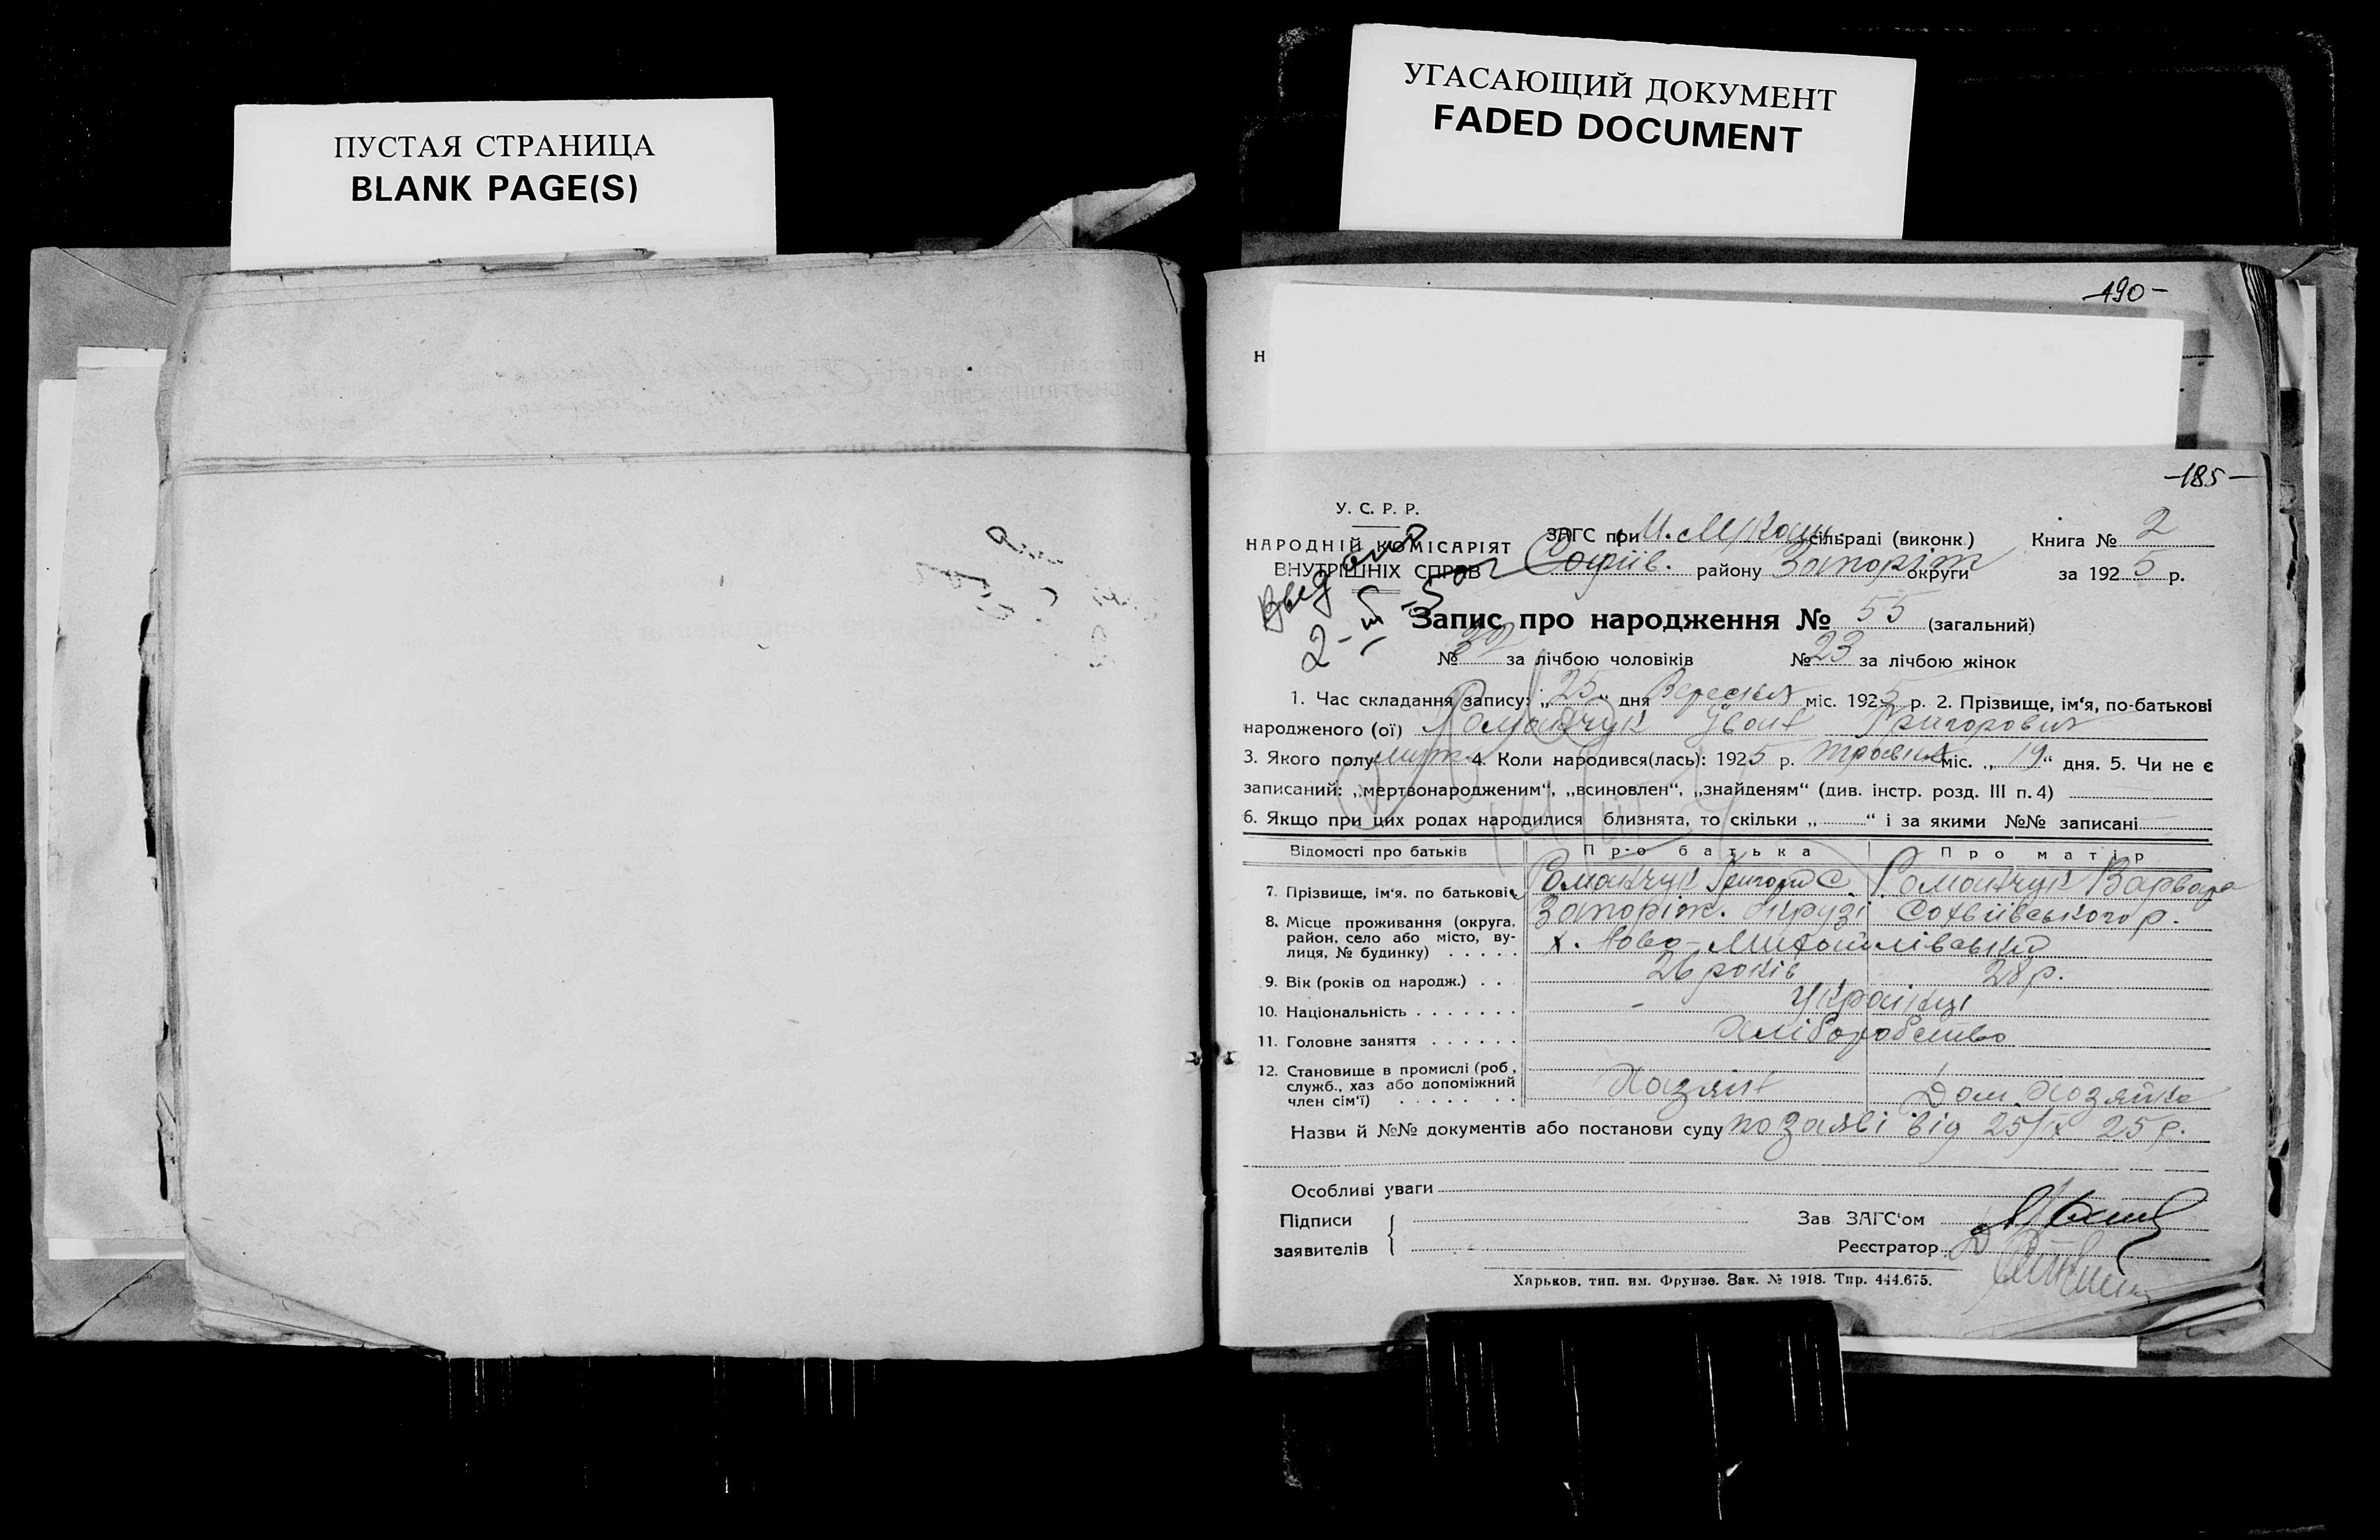 ПУСТАЯ СТРАНИЦА
BLANK PAGE(S)
УГАСАЮЩИЙ ДОКУМЕНТ
FADED DOCUMENT
-190-
Н
-185-
У. С. Р. Р.
НАРОДНІЙ КОМІСАРІЯТ
ВНУТРІШНІХ СПРАВ
ЗАГС при сільраді (виконк.) Книга № 2
Софіїв. району Запоріж округи за 1925 р.
Запис про народження № 55 (загальний)
№ 32 за лічбою чоловіків № 23 за лічбою жінок
1. Час складання запису: „25“ дня Вересня міс. 1925 р. 2. Прізвище, ім‘я, по-батькові
народженого (ої) Романчук Іван Григорович
3. Якого полу муж. 4. Коли народився(лась): 1925 р. травня міс. „19“ дня. 5. Чи не є
записаний: „мертвонародженим“, „всиновлен“, „знайденям“ (див. інстр. розд. III п. 4)
6. Якщо при цих родах народилися близнята, то скільки „ “ і за якими №№ записані
Відомості про батьків Про батька Про матір
7. Прізвище, ім‘я. по батькові Романчук Григорій С. Романчук Варвара
8. Місце проживання (округа, район, село або місто, вулиця, № будинку) Запоріж. округі Софіївського р.
х. Ново-Михайлівський
9. Вік (років од народж.) 26 років 28 р.
10. Національність Українці
11. Головне заняття Хліборобство
12. Становище в промислі (роб, служб., хаз або допоміжний член сім‘ї) Хазяїн Дом. хозяйка
Назви й №№ документів або постанови суду по заяві від 25/IX 25 р.
Особливі уваги
Підписи
заявителів
Зав. ЗАГС‘ом
Реєстратор
Харьков, тип. им. Фрунзе. Зак. № 1918. Тир. 444.675.